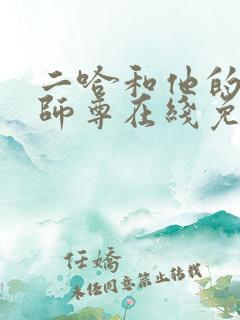 二哈和他的
師尊在綫免
任嬌
未经同意禁止转载